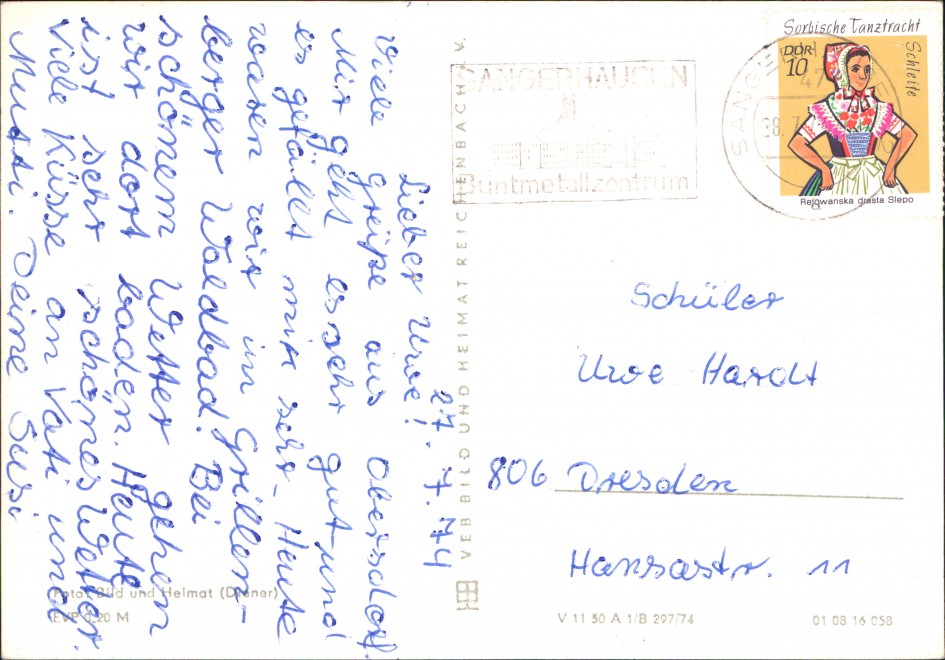 27. 7. 74
Lieber Uwe!
Viele Grüße aus Obersdorf.
Mir geht es sehr gut und
es gefällt mir sehr. Heute
waren wir im Grillen-
berger Waldbad. Bei
schönem Wetter gehen
wir dort baden. Heute
ist sehr schönes Wetter.
Viele Küsse an Vati und
Mutti. Deine Susi
Foto: Bild und Heimat (Darner)
EVP 0,20 M
VEB BILD UND HEIMAT REICHENBACH i. V.
SANGERHAUSEN
Buntmetallzentrum
Sorbische Tanztracht
DDR
10
Schleife
Rejowanska drasta Slepo
Schüler
Uwe Hardt
806 Dresden
Hansastr. 11
V 11 50 A 1/B 297/74
01 08 16 058